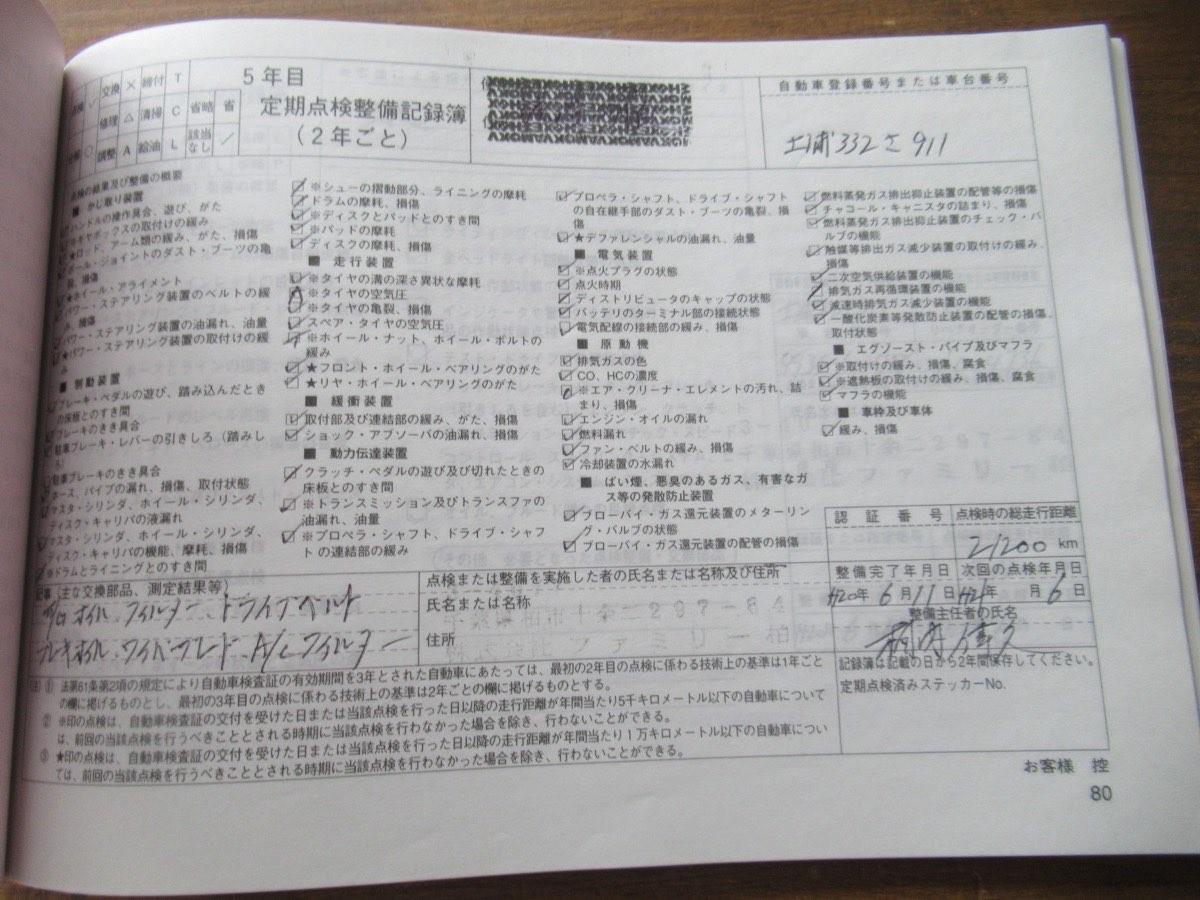 交換 × 締付 T
修理 △ 清掃 C 省略 省
調整 A 給油 L 該当なし ／
5年目
定期点検整備記録簿
(2年ごと)
自動車登録番号または車台番号
土浦 332 さ 911
点検の結果及び整備の概要
■ かじ取り装置
ハンドルの操作具合、遊び、がた
ギヤボックスの取付けの緩み
★ロッド、アーム類の緩み、がた、損傷
ボール・ジョイントのダスト・ブーツの亀
裂、損傷
★ホイール・アライメント
パワー・ステアリング装置のベルトの緩
み、損傷
パワー・ステアリング装置の油漏れ、油量
★パワー・ステアリング装置の取付けの緩
み
■ 制動装置
ブレーキ・ペダルの遊び、踏み込んだとき
の床板とのすき間
ブレーキのきき具合
駐車ブレーキ・レバーの引きしろ（踏みし
ろ）
駐車ブレーキのきき具合
ホース、パイプの漏れ、損傷、取付状態
マスタ・シリンダ、ホイール・シリンダ、
ディスク・キャリパの液漏れ
マスタ・シリンダ、ホイール・シリンダ、
ディスク・キャリパの機能、摩耗、損傷
※ドラムとライニングとのすき間
※シューの摺動部分、ライニングの摩耗
ドラムの摩耗、損傷
※ディスクとパッドとのすき間
※パッドの摩耗
ディスクの摩耗、損傷
■ 走行装置
※タイヤの溝の深さ異状な摩耗
※タイヤの空気圧
※タイヤの亀裂、損傷
スペア・タイヤの空気圧
※ホイール・ナット、ホイール・ボルトの
緩み
★フロント・ホイール・ベアリングのがた
★リヤ・ホイール・ベアリングのがた
■ 緩衝装置
取付部及び連結部の緩み、がた、損傷
ショック・アブソーバの油漏れ、損傷
■ 動力伝達装置
クラッチ・ペダルの遊び及び切れたときの
床板とのすき間
※トランスミッション及びトランスファの
油漏れ、油量
※プロペラ・シャフト、ドライブ・シャフ
トの連結部の緩み
プロペラ・シャフト、ドライブ・シャフト
の自在継手部のダスト・ブーツの亀裂、損
傷
★デファレンシャルの油漏れ、油量
■ 電気装置
※点火プラグの状態
点火時期
ディストリビュータのキャップの状態
バッテリのターミナル部の接続状態
電気配線の接続部の緩み、損傷
■ 原動機
排気ガスの色
CO、HCの濃度
※エア・クリーナ・エレメントの汚れ、詰
まり、損傷
エンジン・オイルの漏れ
燃料漏れ
ファン・ベルトの緩み、損傷
冷却装置の水漏れ
■ ばい煙、悪臭のあるガス、有害なガ
ス等の発散防止装置
ブローバイ・ガス還元装置のメターリン
グ・バルブの状態
ブローバイ・ガス還元装置の配管の損傷
燃料蒸発ガス排出抑止装置の配管等の損傷
チャコール・キャニスタの詰まり、損傷
燃料蒸発ガス排出抑止装置のチェック・バ
ルブの機能
触媒等排出ガス減少装置の取付けの緩み、
損傷
二次空気供給装置の機能
排気ガス再循環装置の機能
減速時排気ガス減少装置の機能
一酸化炭素等発散防止装置の配管の損傷、
取付状態
■ エグゾースト・パイプ及びマフラ
※取付けの緩み、損傷、腐食
※遮熱板の取付けの緩み、損傷、腐食
マフラの機能
■ 車枠及び車体
緩み、損傷
認証番号 点検時の総走行距離
21200 km
整備完了年月日 次回の点検年月日
H20年 6月 11日 H21年 月 6日
整備主任者の氏名
記録簿は記載の日から2年間保存してください。
定期点検済みステッカーNo.
記事（主な交換部品、測定結果等）
オイル フィルター ドライブベルト
ブレーキオイル ワイパーブレード A/C フィルター
点検または整備を実施した者の氏名または名称及び住所
氏名または名称
千葉県柏市十余二297-84
住所
株式会社ファミリー柏
(注) ① 法第61条第2項の規定により自動車検査証の有効期間を3年とされた自動車にあたっては、最初の2年目の点検に係わる技術上の基準は1年ごと
の欄に掲げるものとし、最初の3年目の点検に係わる技術上の基準は2年ごとの欄に掲げるものとする。
② ※印の点検は、自動車検査証の交付を受けた日または当該点検を行った日以降の走行距離が年間当たり5千キロメートル以下の自動車について
は、前回の当該点検を行うべきこととされる時期に当該点検を行わなかった場合を除き、行わないことができる。
③ ★印の点検は、自動車検査証の交付を受けた日または当該点検を行った日以降の走行距離が年間当たり1万キロメートル以下の自動車につい
ては、前回の当該点検を行うべきこととされる時期に当該点検を行わなかった場合を除き、行わないことができる。
お客様 控
80